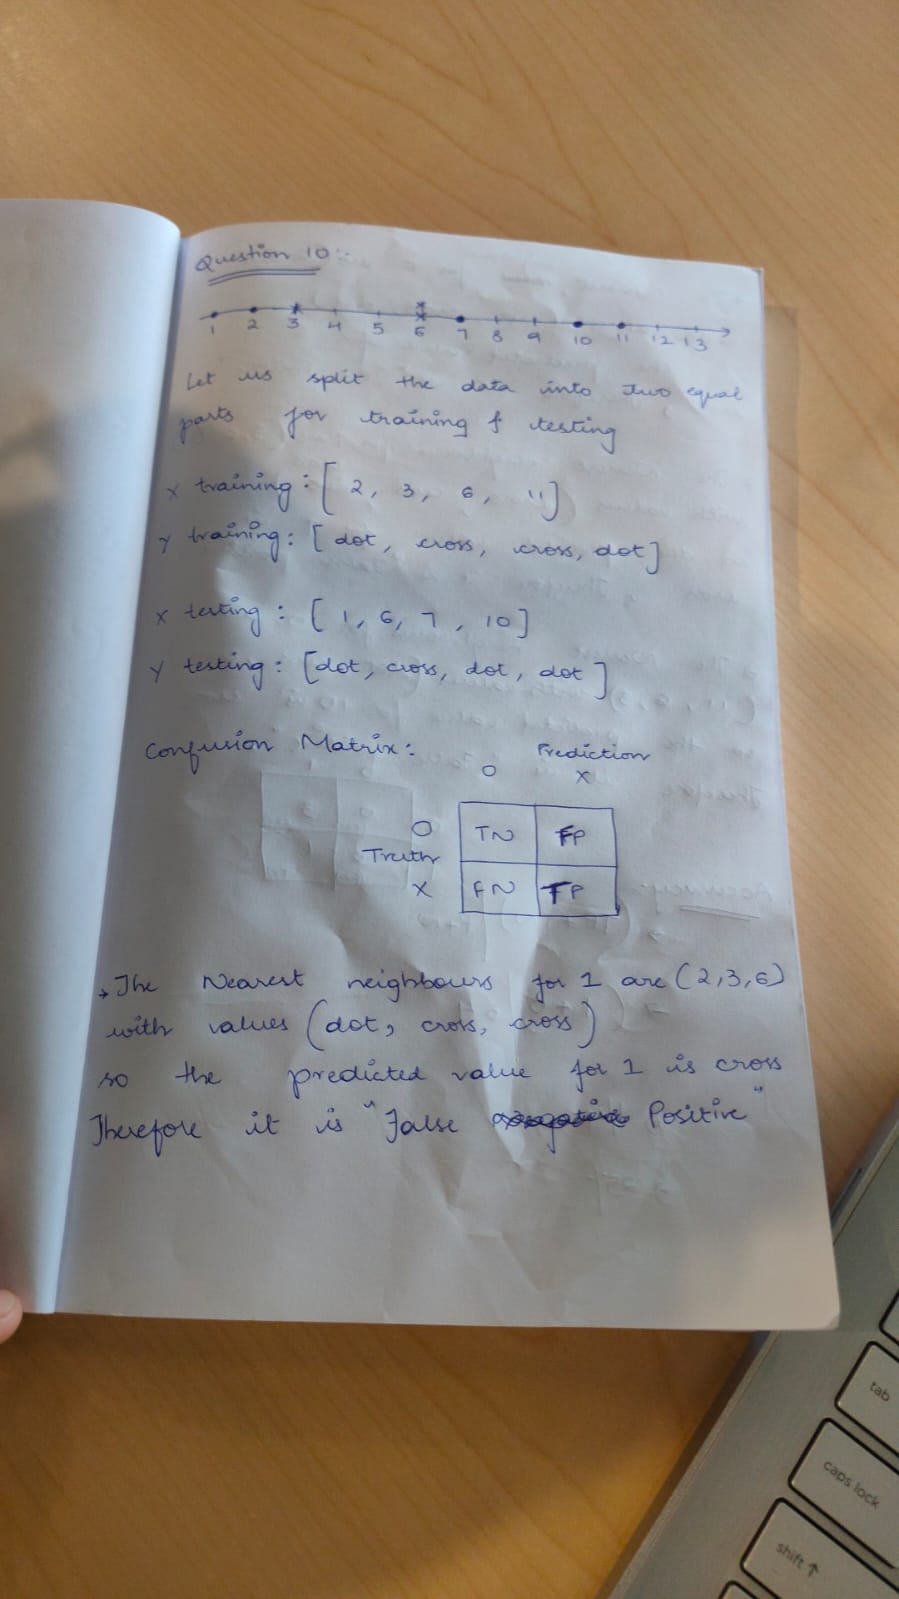 Question 10:-
1 2 3 4 5 6 7 8 9 10 11 12 13
Let us split the data into two equal
parts for training & testing
x training: [ 2, 3, 6, 11]
y training: [ dot, cross, cross, dot]
x testing : [ 1, 6, 7, 10]
y testing: [dot, cross, dot, dot ]
Confusion Matrix:
Prediction
O X
O TN FP
Truth
X FN TP
→ The Nearest neighbours for 1 are (2,3,6)
with values (dot, cross, cross)
so the predicted value for 1 is cross
Therefore it is "False Positive"
tab
caps lock
shift ↑